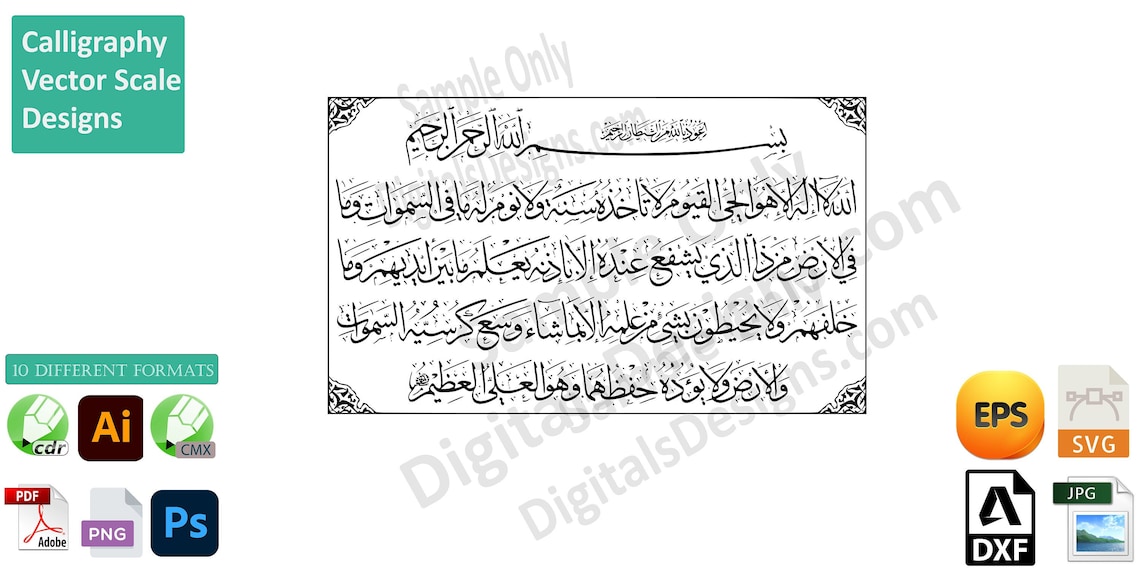 Calligraphy
Vector Scale
Designs
Sample Only
DigitalsDesigns.com
اعوذ بالله من الشيطان الرجيم
بسم الله الرحمن الرحيم
الله لا إله إلا هو الحي القيوم لا تأخذه سنة ولا نوم له ما في السموات وما
في الأرض من ذا الذي يشفع عنده إلا بإذنه يعلم ما بين أيديهم وما
خلفهم ولا يحيطون بشيء من علمه إلا بما شاء وسع كرسيه السموات
والأرض ولا يؤده حفظهما وهو العلي العظيم
Sample Only
DigitalsDesigns.com
DigitalsDesigns.com
10 DIFFERENT FORMATS
cdr
Ai
CMX
PDF
Adobe
PNG
Ps
EPS
SVG
DXF
JPG